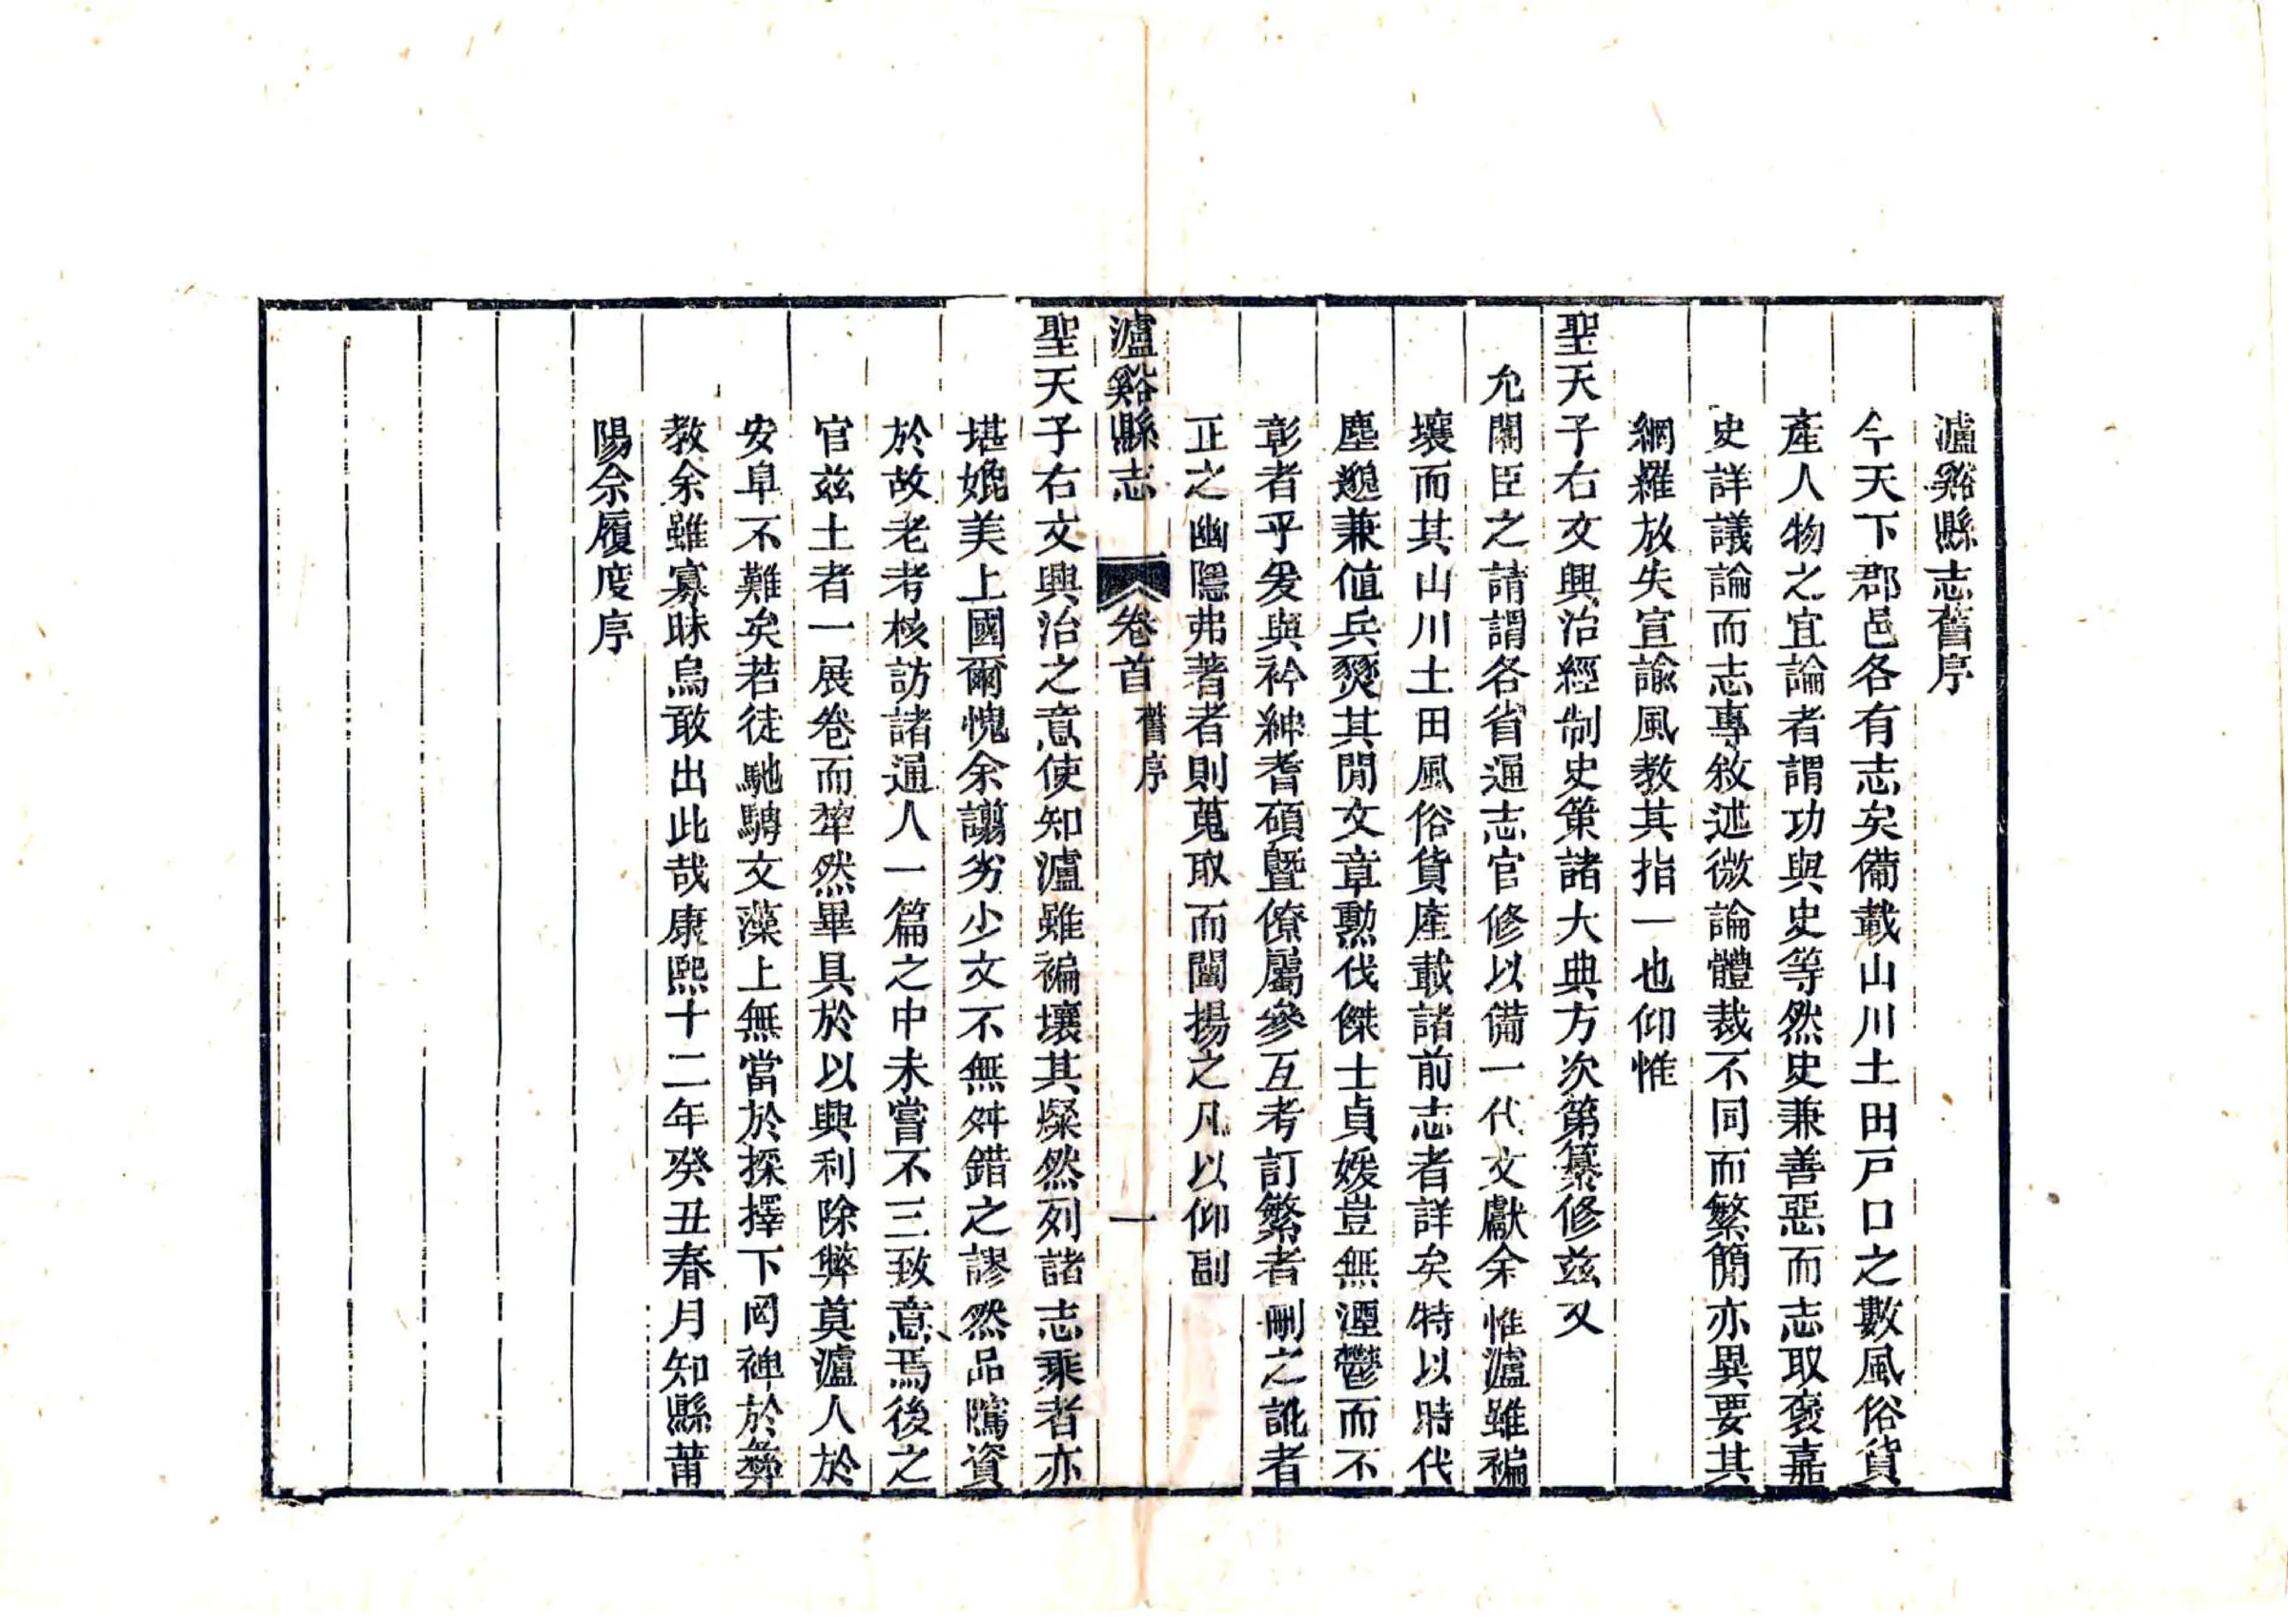 瀘谿縣志舊序
今天下郡邑各有志矣備載山川土田戸口之數風俗貨
產人物之宜論者謂功與史等然史兼善惡而志取褒嘉
史詳議論而志專敘述微論體裁不同而繁簡亦異要其
網羅放失宣諭風教其指一也仰惟
聖天子右文興治經制史策諸大典方次第纂修兹又
允閣臣之請謂各省通志官修以備一代文獻余惟瀘雖褊
壤而其山川土田風俗貨產載諸前志者詳矣特以時代
塵邈兼值兵燹其間文章勲伐傑士貞媛豈無湮鬱而不
彰者乎爰與衿紳耆碩暨僚屬參互考訂繁者刪之訛者
正之幽隱弗著者則蒐取而闡揚之凡以仰副
瀘谿縣志 卷首 舊序 一
聖天子右文興治之意使知瀘雖褊壤其燦然列諸志乘者亦
堪媲美上國爾愧余譾劣少文不無舛錯之謬然品隲資
於故老考核訪諸通人一篇之中未嘗不三致意焉後之
官兹土者一展卷而犂然畢具於以興利除弊莫瀘人於
安阜不難矣若徒馳騁文藻上無當於採擇下罔裨於彝
教余雖寡昧烏敢出此哉康熙十二年癸丑春月知縣莆
陽佘履度序